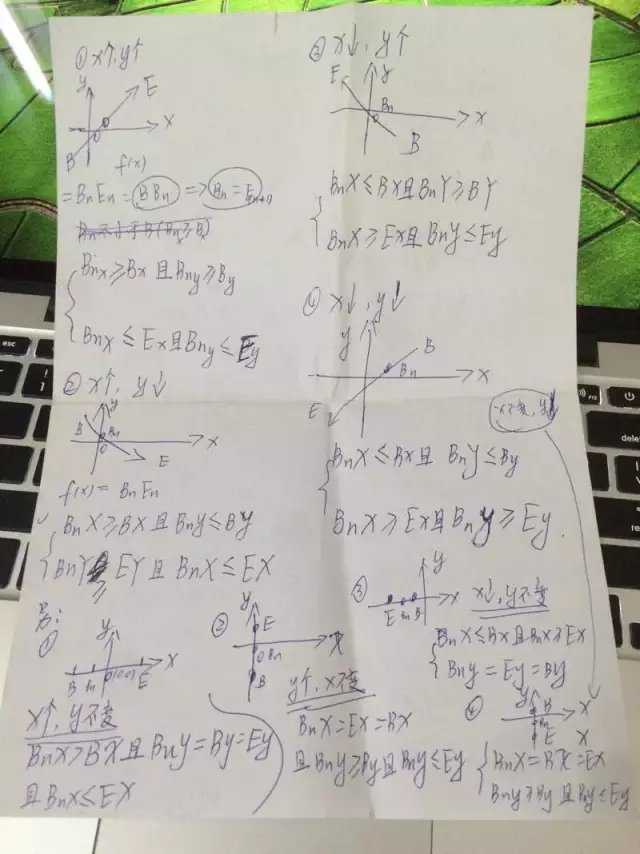 ① x↑, y↑
y
E
x
B
f(x)
= BnEn = BBn => Bn = En+1
Bnx ≥ Bx 且 Bny ≥ By
Bnx ≤ Ex 且 Bny ≤ Ey
② x↑, y↓
y
Bn
x
E
f(x) = BnEn
BnX ≥ BX 且 Bny ≤ By
BnY ≥ EY 且 BnX ≤ EX
③ x↓, y↑
E
y
Bn
x
B
BnX ≤ BX 且 BnY ≥ BY
BnX ≥ EX 且 Bny ≤ Ey
④ x↓, y↓
y
B
Bn
x
E
x不变, y↓
BnX ≤ BX 且 BnY ≤ By
BnX ≥ EX 且 Bny ≥ Ey.
①
y
x
B
Bn
E
x↑, y不变
BnX ≥ BX 且 BnY = By = Ey
且 BnX ≤ EX
②
y
E
x
Bn
B
y↑, x不变
BnX = EX = BX
且 Bny ≥ By 且 Bny ≤ Ey
③
y
x
E Bn B
x↓, y不变
BnX ≤ BX 且 BnX ≥ EX
Bny = Ey = By
④
y
B
x
Bn
E
x
BnX = BX = EX
Bny ≥ By 且 Bny ≤ Ey
esc
delete